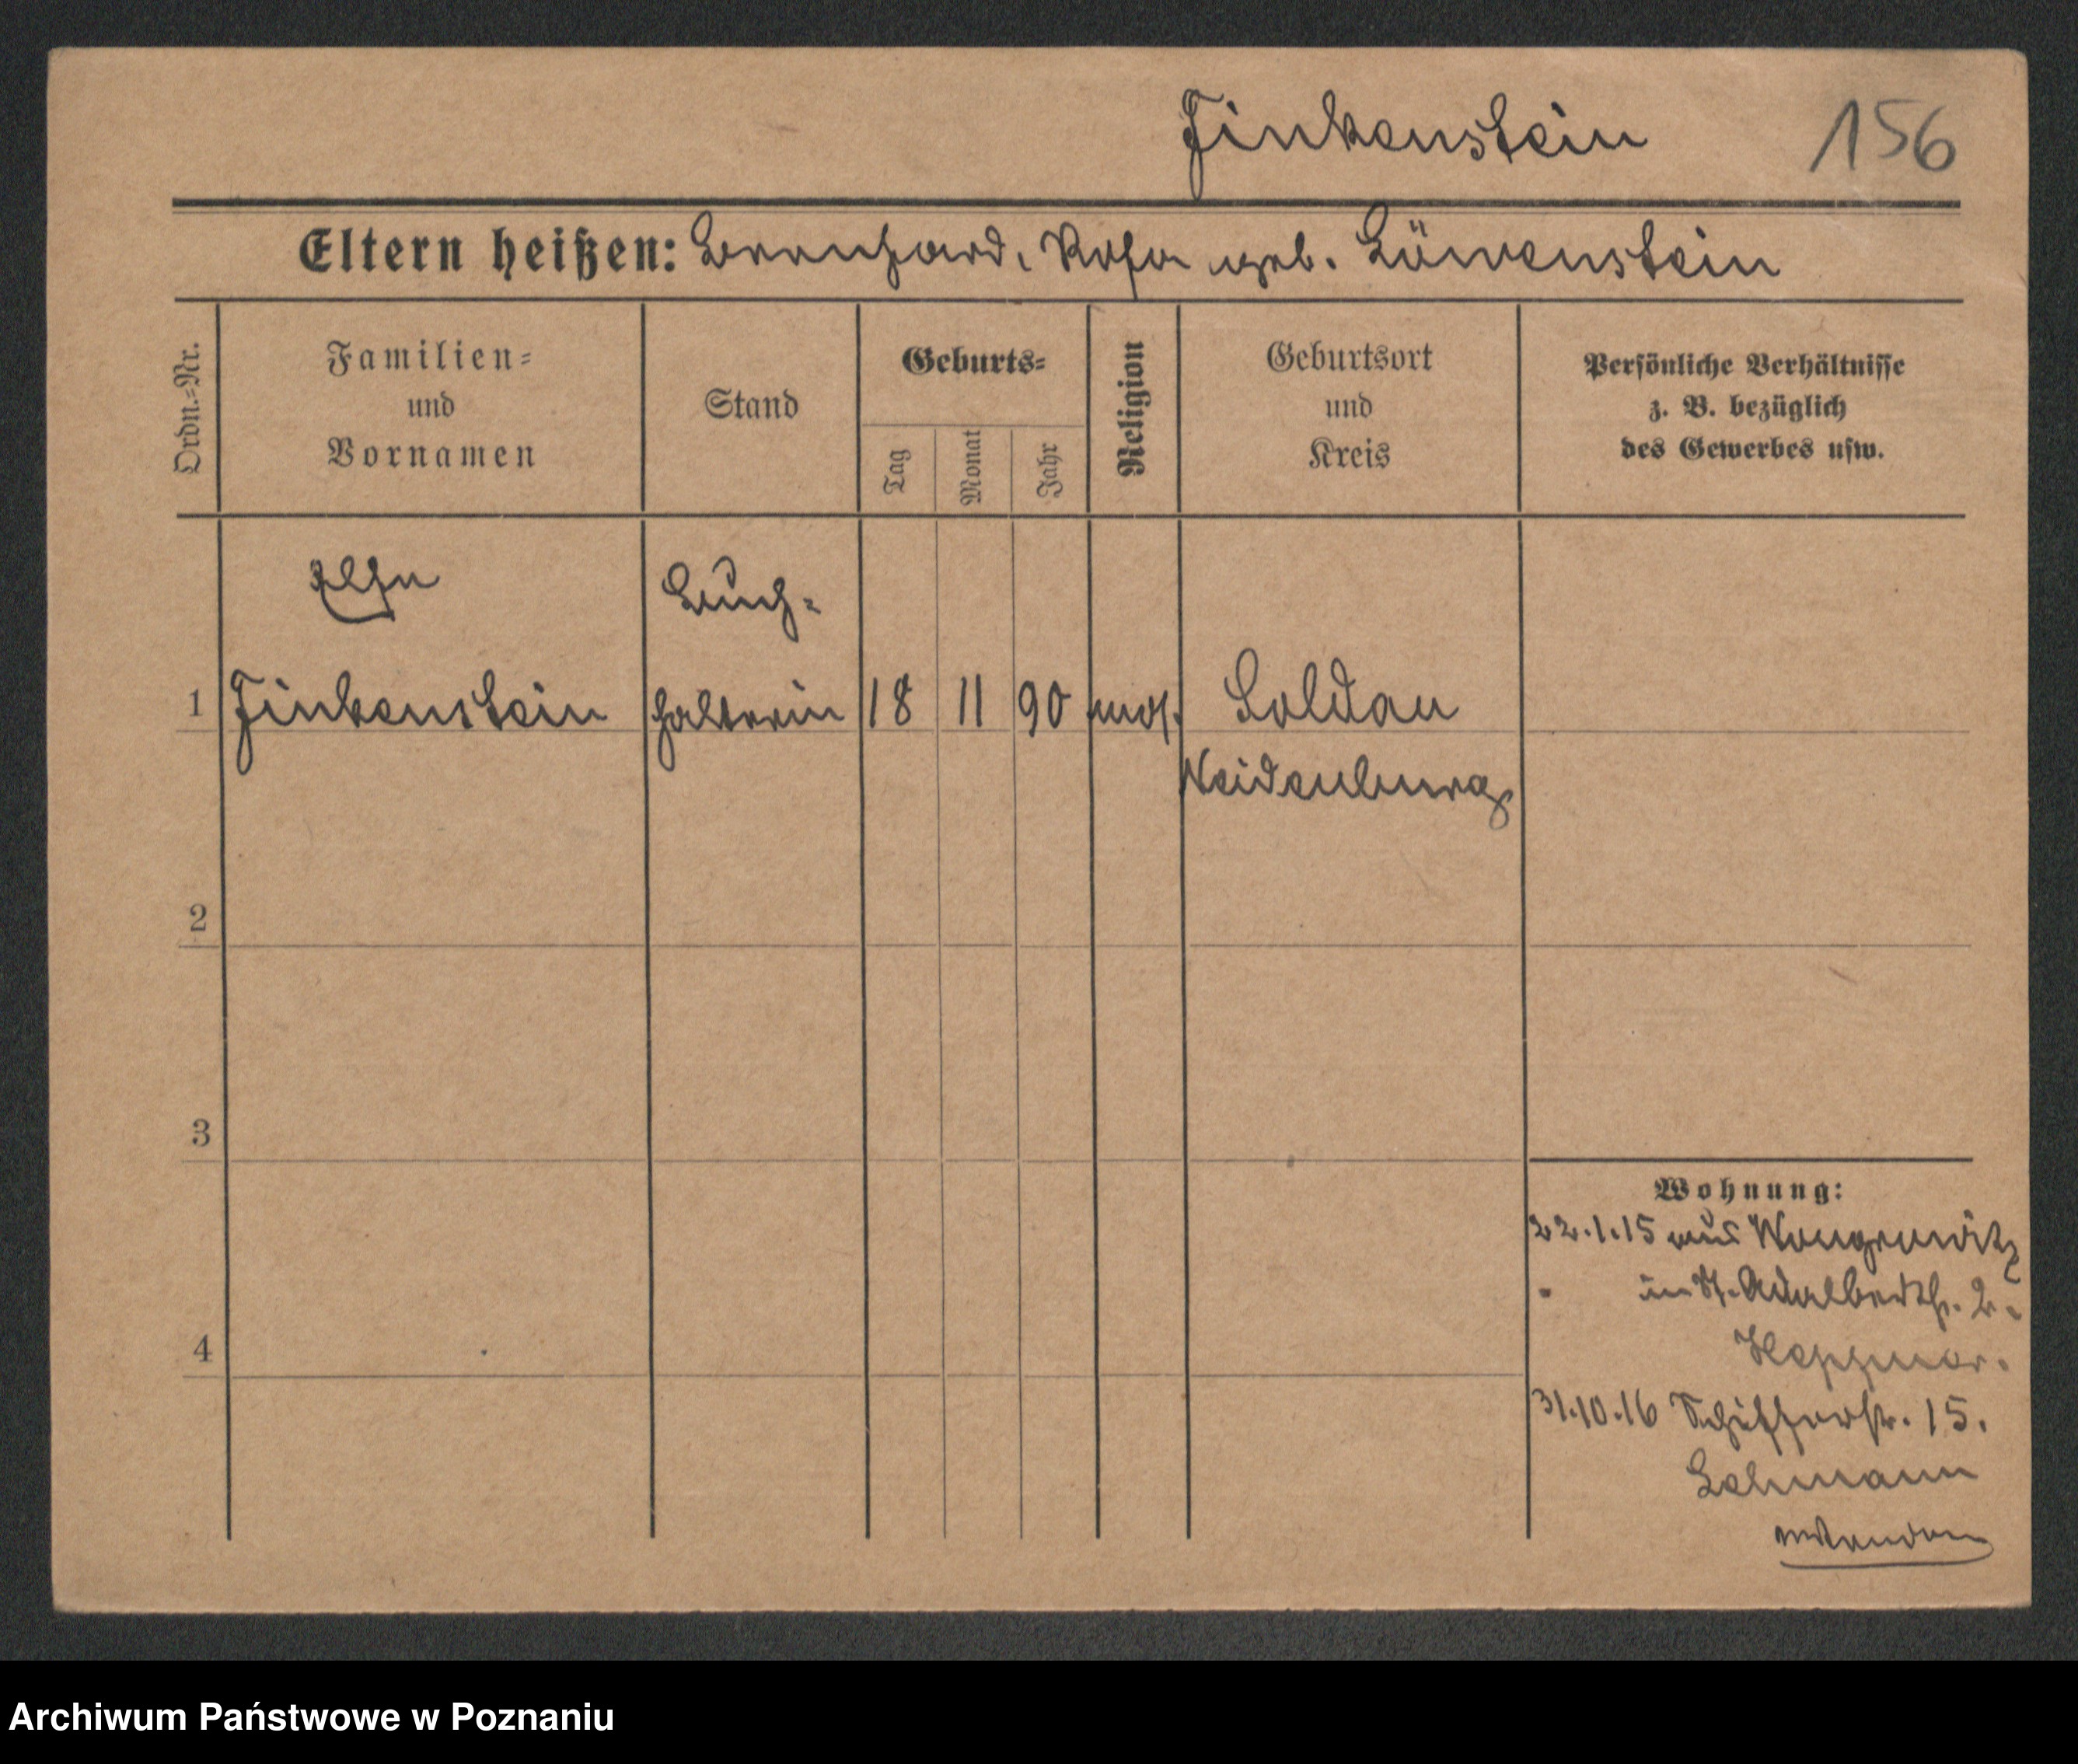 Finkenstein 156
Eltern heißen: Bernhard, Rosa geb. Löwenstein
Ordn.=Nr.
Familien=
und
Vornamen
Stand
Geburts=
Tag
Monat
Jahr
Religion
Geburtsort
und
Kreis
Persönliche Verhältnisse
z. B. bezüglich
des Gewerbes usw.
Buch=
1 Finkenstein halterin 18 11 90 mos. Soldau
Neidenburg
2
3
4
Wohnung:
22.1.15 aus Wongrowitz
in St. Adalbertstr. 2.
31.10.16 Schifferstr. 15.
Lehmann
Archiwum Państwowe w Poznaniu